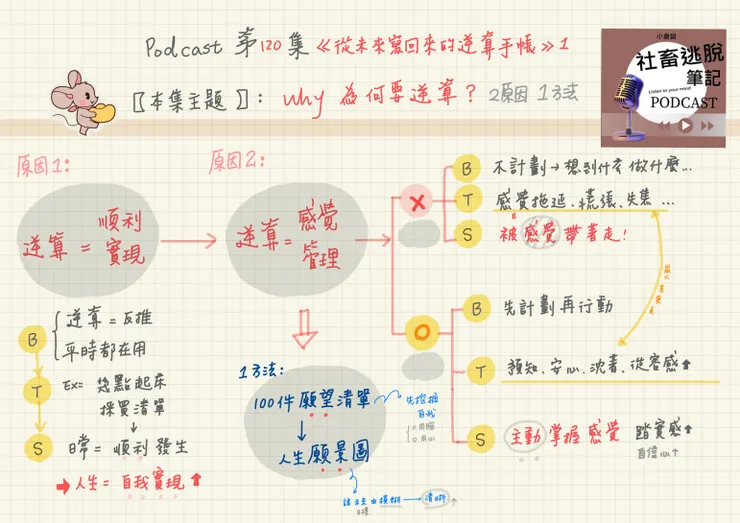 Podcast 第120集 《從未來寫回來的逆算手帳》1
【本集主題】: Why 為何要逆算? 2原因 1方法
小倉鼠
社畜逃脫
筆記
Listen to your mind
PODCAST
原因1:
逆算 = 順利實現
原因2:
逆算 = 感覺管理
X
B 不計劃→想到什麼做什麼...
T 感覺拖延、慌張、失焦...
S 被感覺帶著走!
O
B 先計劃再行動
T 預知、安心、沈著、從容感↑
S 主動掌握感覺 踏實感↑
自信心↑
B 逆算=反推
平時都在用
T Ex= 幾點起床
採買清單
S 日常=順利發生
→人生=自我實現↑
1方法:
100件願望清單
先挖掘
自我
X 用腦
O 用心
↓
人生願景圖
讓未來由模糊→清晰↑